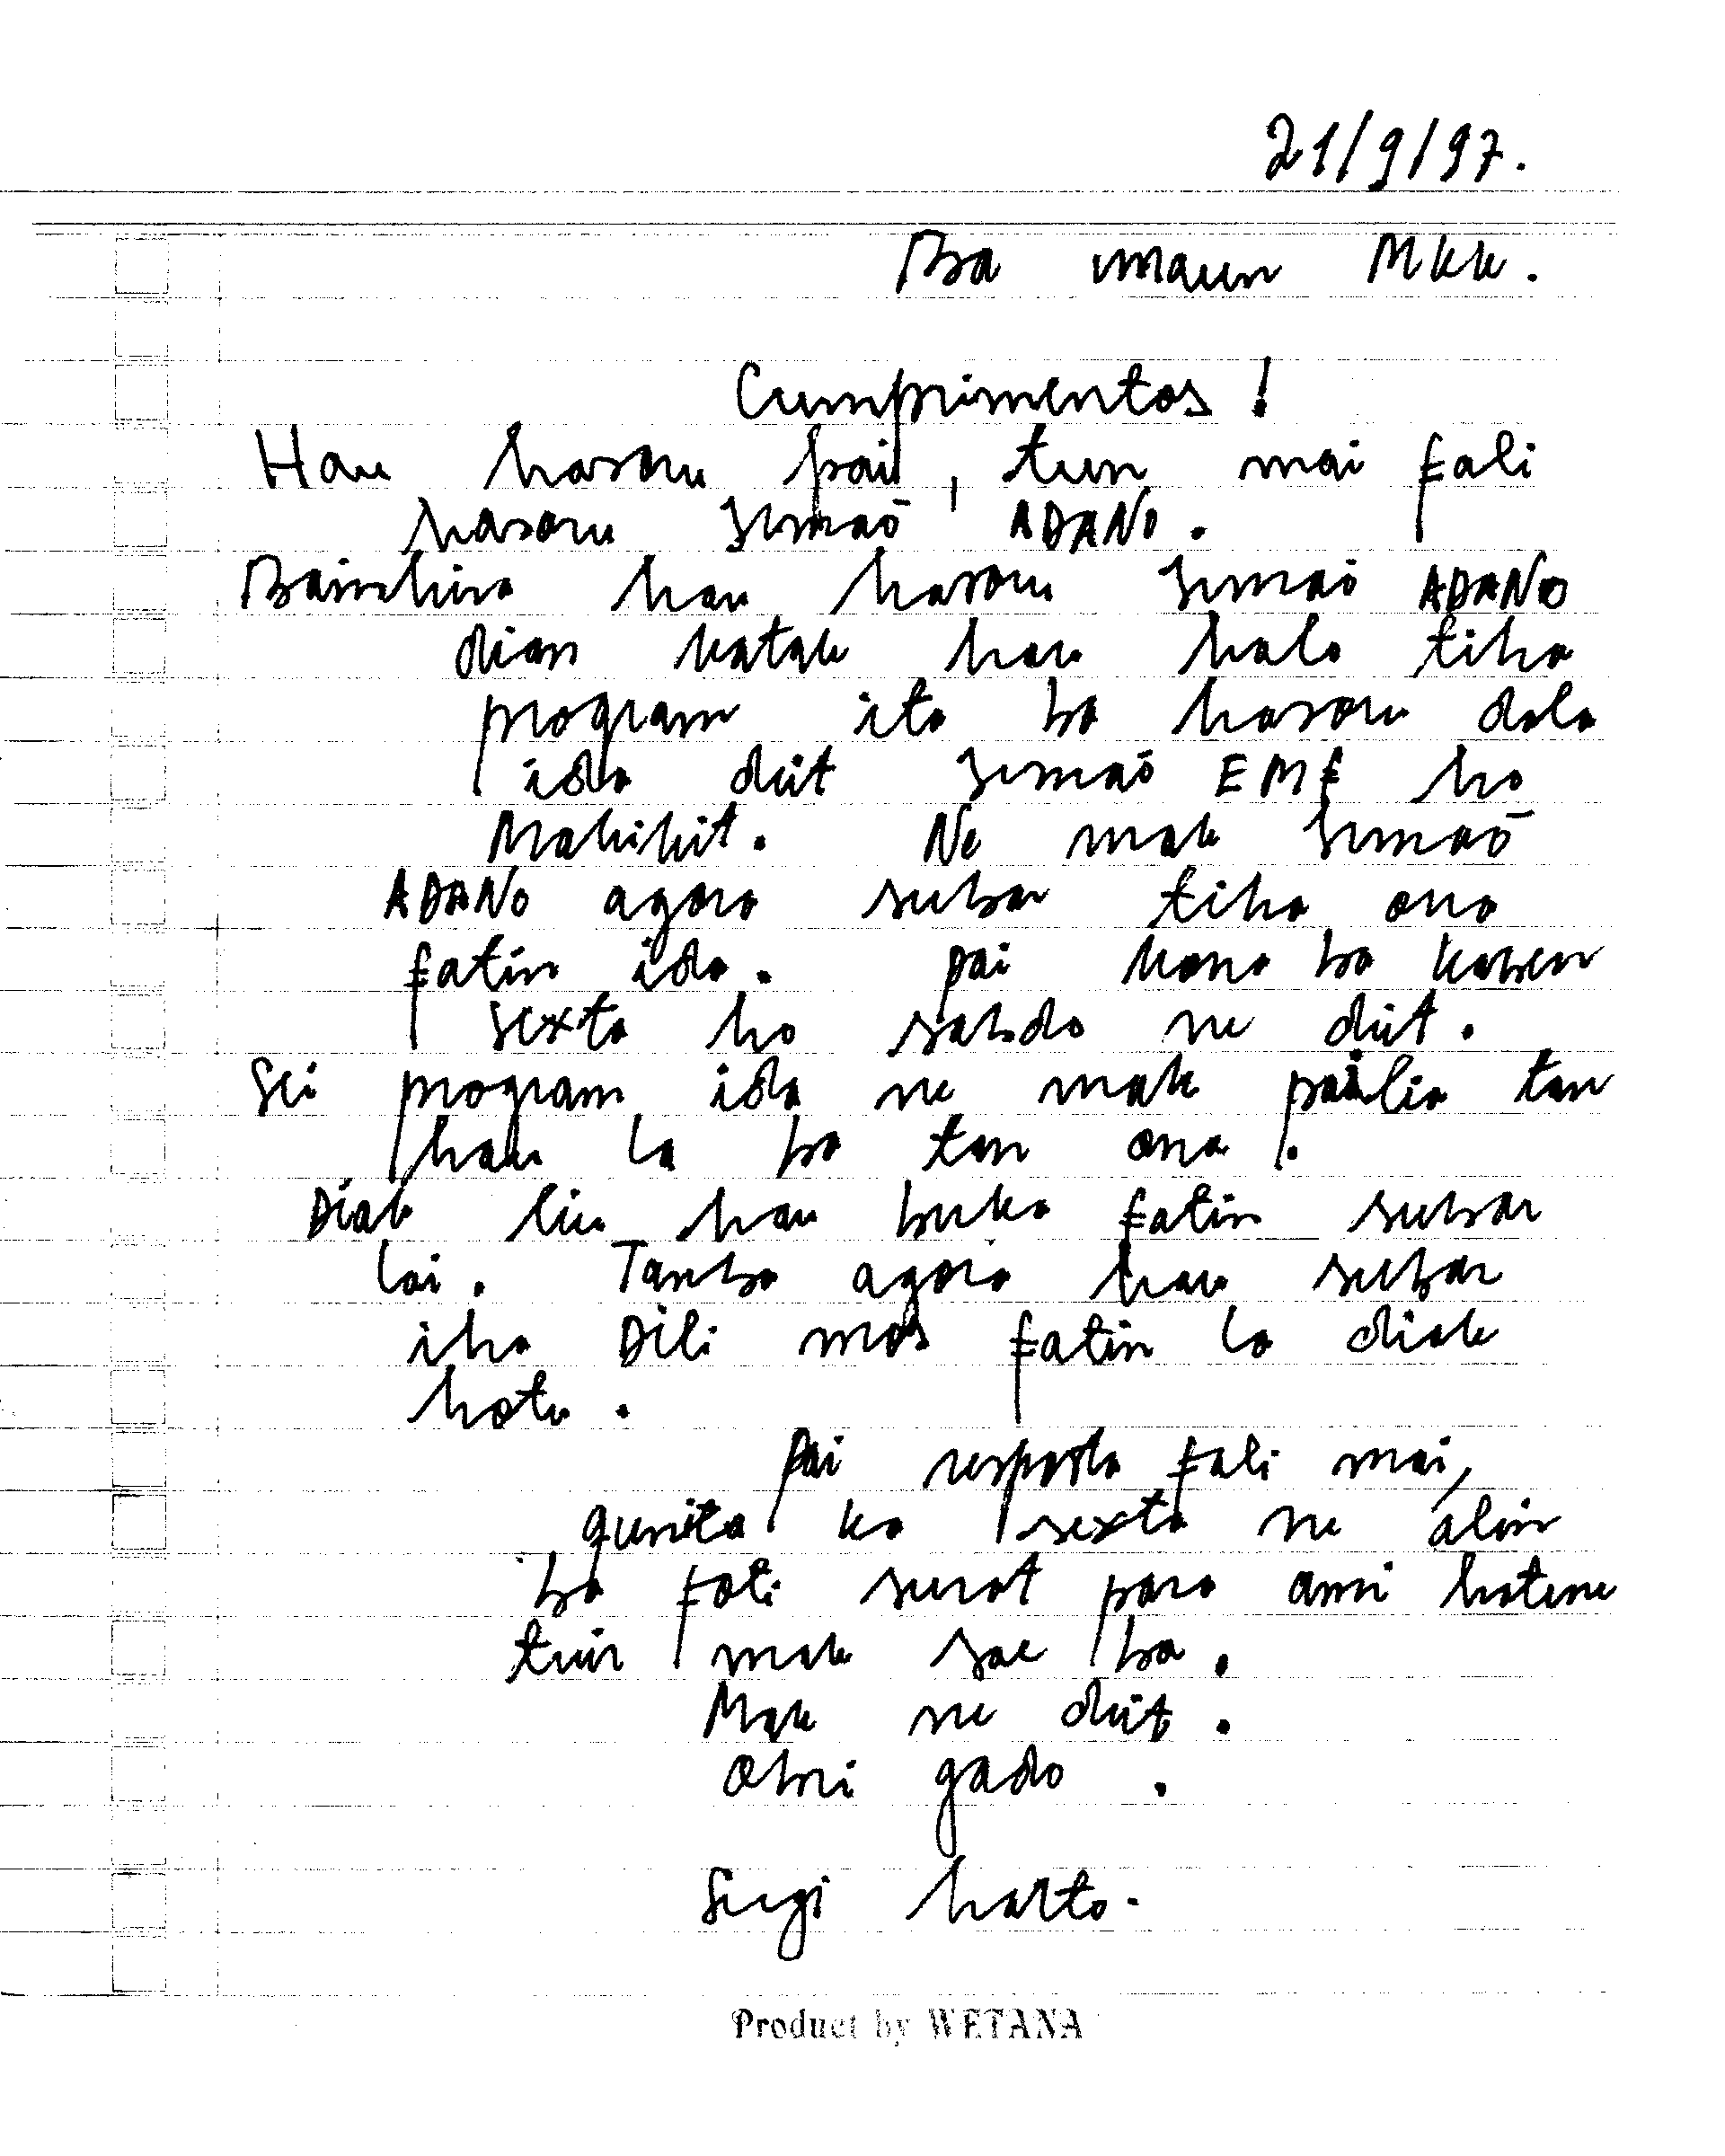 21/9/97.
Ba maun Mkk.
Cumprimentos!
Hau hasoru pai, tun mai fali
hasoru Irmaō ADANO.
Bainhira hau hasoru Irmaō ADANO
dian katak hau halo tiha
program ita ba hasoru dala
ida deit Irmaō EMF ho
Makikit. Ne mak Irmaō
ADANO agora subar tiha ona
fatin ida. pai kona ba kaben
sexta ho sabdo ne deit.
Sei program ida ne mak pailia tan
hau la ba tan ona.
Diak liu hau buka fatin subar
lai. Tamba agora hau subar
iha Dili mos fatin la diak
hotu.
Pai resposta fali mai,
qunita ka sexta ne alin
ba foti surat para ami hatene
tuir mak sae ba.
Mak ne deit.
Obri gado.
Sugi harto.
Product by WETANA